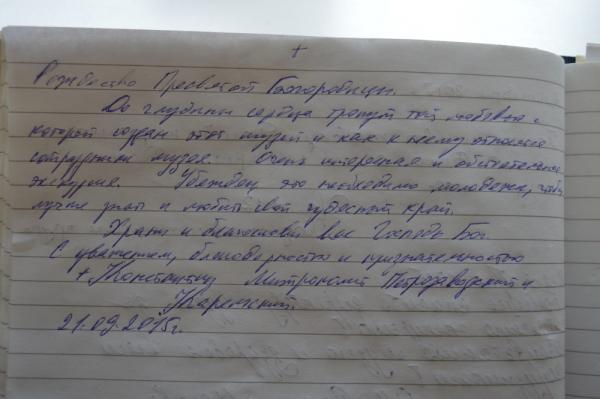 +
Рождество Пресвятой Богородицы.
До глубины сердца тронут той любовью с
которой создан этот музей и как к нему относятся
сотрудники музея. Очень интересная и обстоятельная
экскурсия. Убежден, это необходимо молодежи, чтобы
лучше знать и любить свой чудесный край.
Храни и благослови вас Господь Бог
С уважением, благодарностью и признательностью
+ Константин Митрополит Петрозаводский и
Карельский.
21.09.2015г.